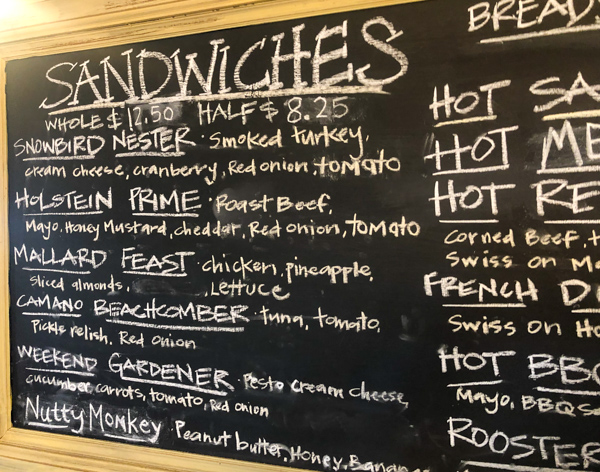 SANDWICHES
WHOLE $ 12.50 HALF $ 8.25
SNOWBIRD NESTER · Smoked turkey,
cream cheese, cranberry, Red onion, tomato
HOLSTEIN PRIME · Roast Beef,
Mayo, Honey Mustard, cheddar, Red onion, tomato
MALLARD FEAST · chicken, pineapple,
sliced almonds, Lettuce
CAMANO BEACHCOMBER · tuna, tomato,
Pickle relish, Red onion
WEEKEND GARDENER · Pesto cream cheese,
cucumber, carrots, tomato, Red onion
Nutty Monkey · Peanut butter, Honey, Banana
BREAD
HOT SA
HOT ME
HOT RE
Corned Beef,
Swiss on
FRENCH D
Swiss on Ho
HOT BBQ
Mayo, BBQ S
ROOSTER